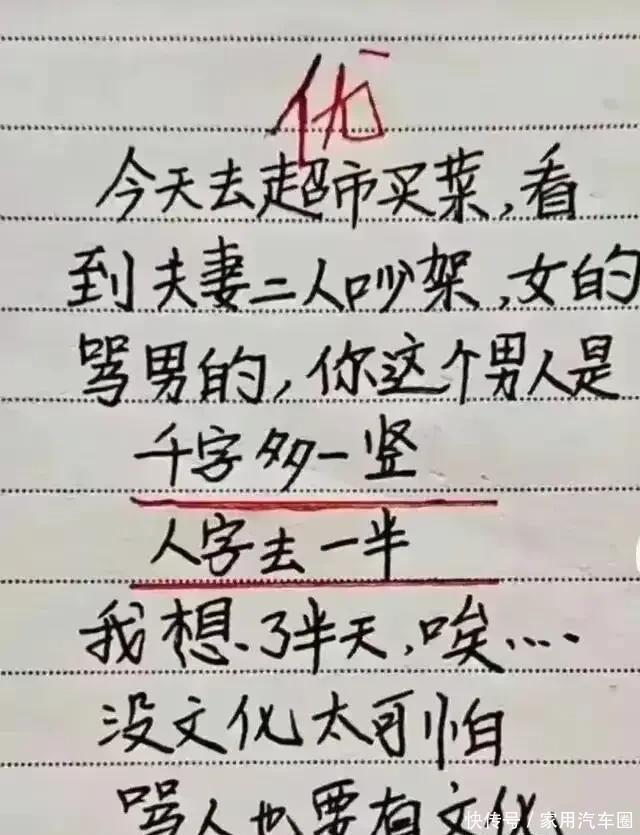 优
今天去超市买菜,看
到夫妻二人吵架,女的
骂男的,你这个男人是
千字多一竖
人字去一半
我想了半天,唉….
没文化太可怕
骂人也要有文化
快传号/家用汽车圈